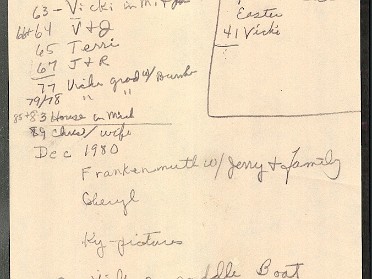 63 - Vicki in
66+64 V+J
65 Terri
67 J+R
77 Vicki grad w/
79/78 " "
85+83 House in Mich
89 Chris/wife
Dec 1980
Frankenmuth w/ Jerry + family
Cheryl
Ky-pictures
Boat
Easter
41 Vicki